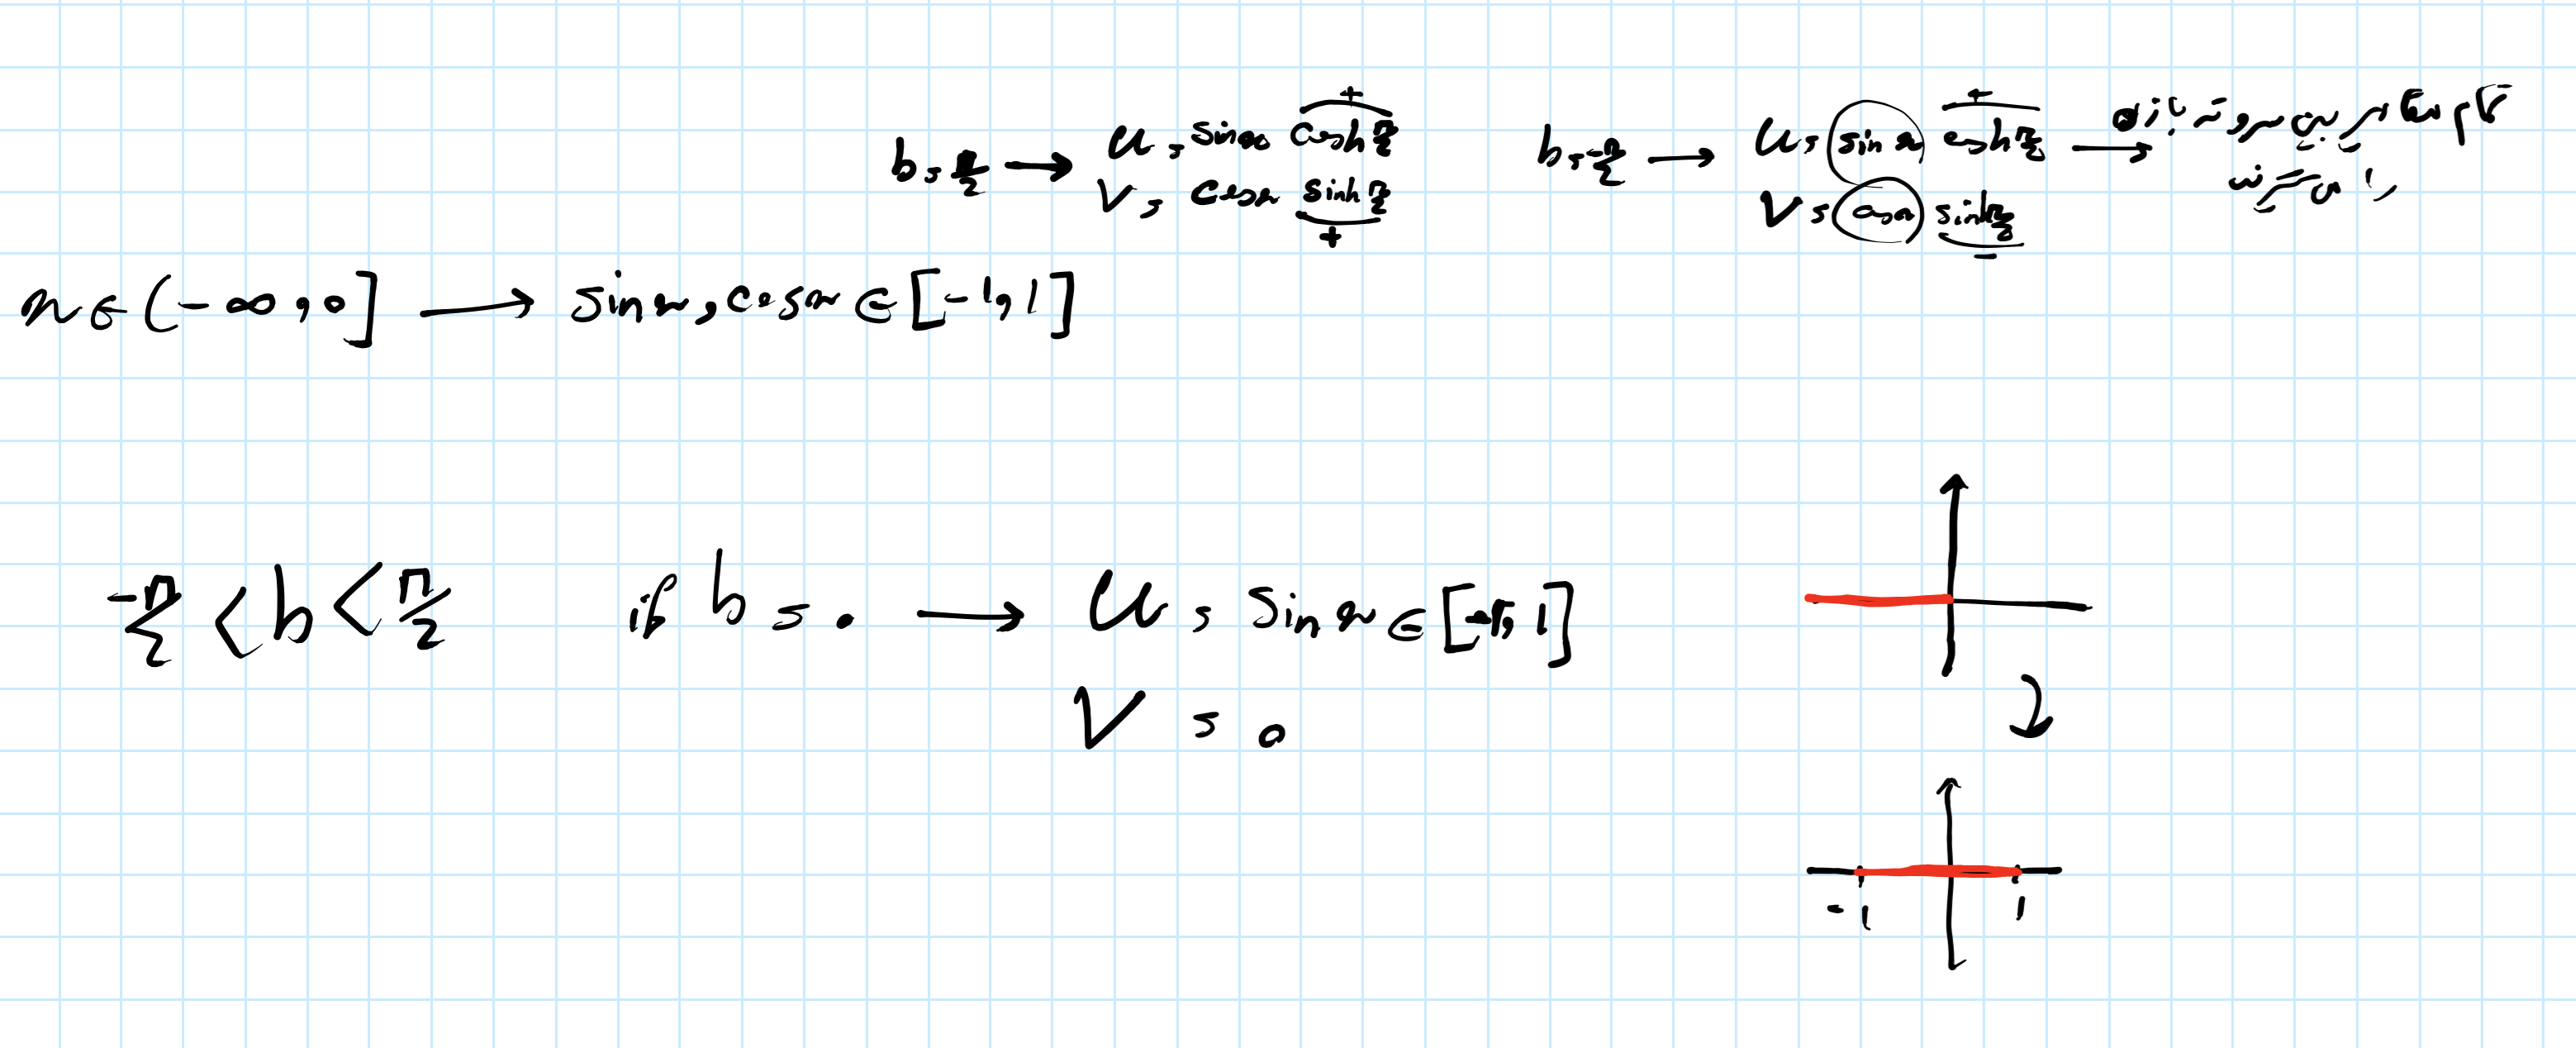 b = π/2 → u = sin x cosh π/2 +
v = cos x sinh π/2 +
b = -π/2 → u = sin x cosh π/2 + → تمام مقادیر بین سر و ته بازه
v = cos x sinh π/2 - را می گیرند
x ∈ (-∞, 0] → sin x, cos x ∈ [-1, 1]
-π/2 < b < π/2 if b = 0 → u = sin x ∈ [-1, 1]
v = 0
-1 1